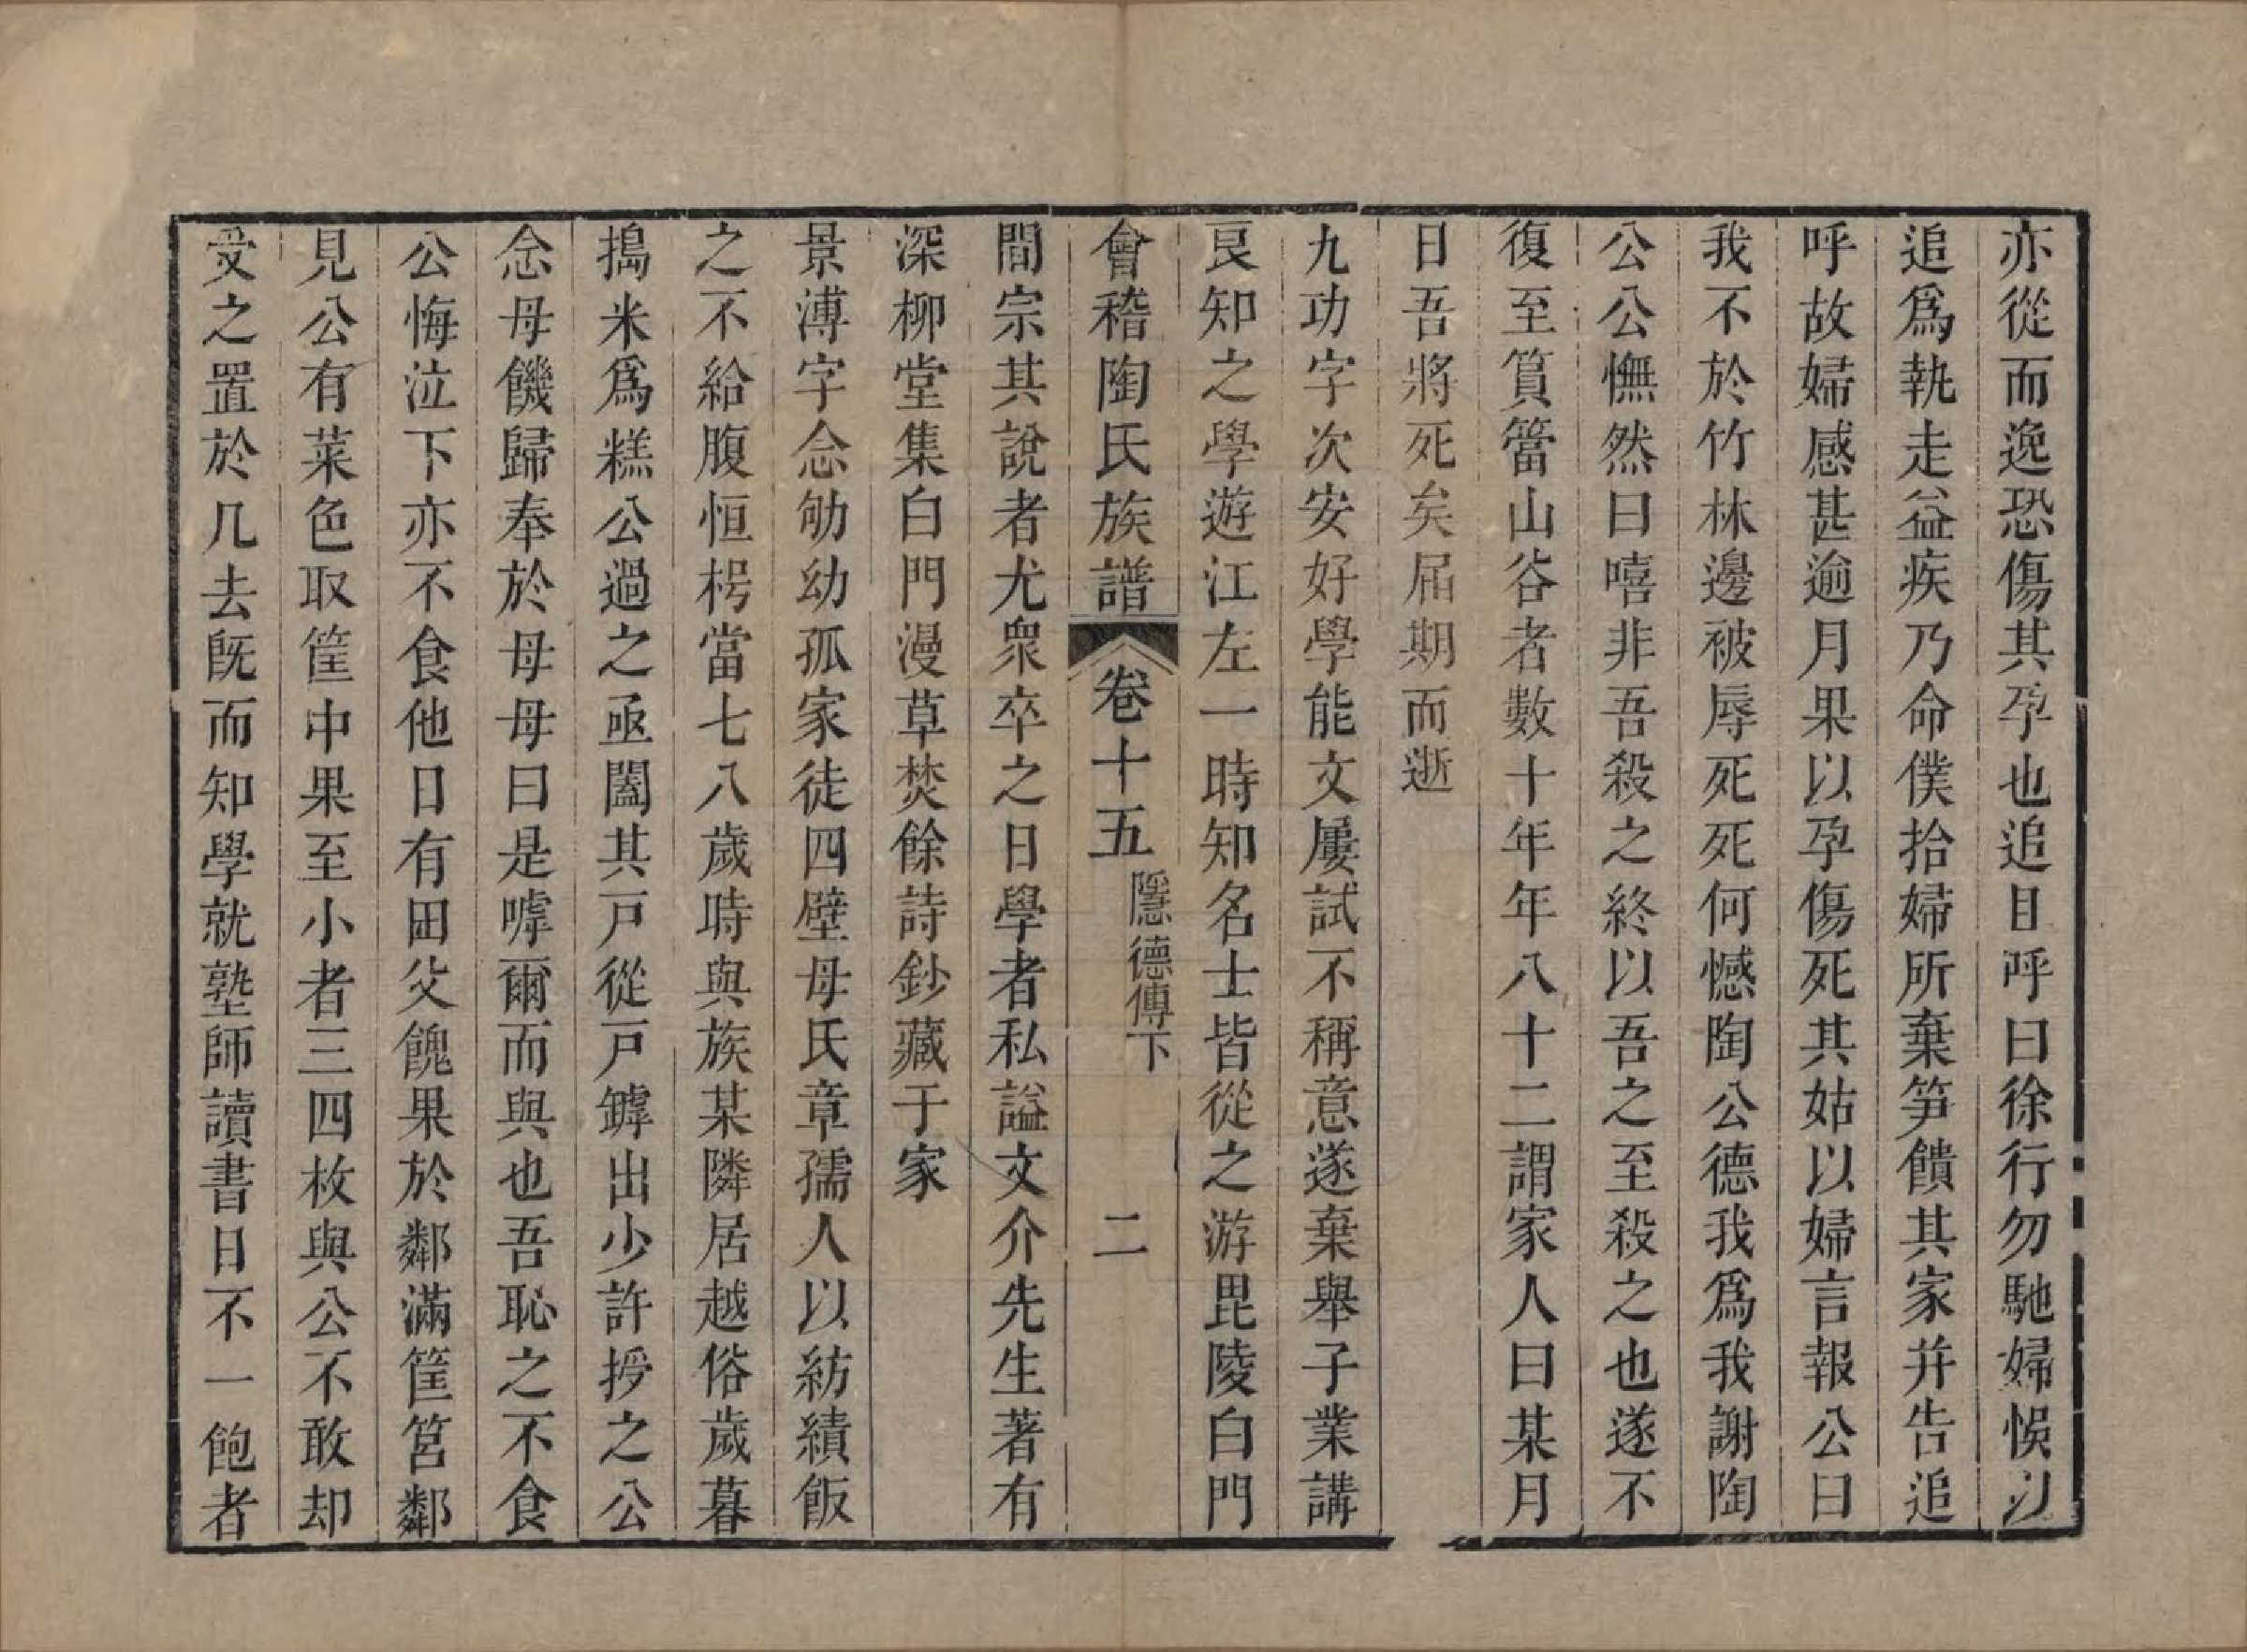 亦從而逸恐傷其孕也追目呼曰徐行勿馳婦悞以
追爲執走益疾乃命僕拾婦所棄笋饋其家并告追
呼故婦感甚逾月果以孕傷死其姑以婦言報公曰
我不於竹林邊被辱死死何憾陶公德我爲我謝陶
公公憮然曰嘻非吾殺之終以吾之至殺之也遂不
復至篔簹山谷者數十年年八十二謂家人曰某月
日吾將死矣屆期而逝
九功字次安好學能文屢試不稱意遂棄舉子業講
良知之學遊江左一時知名士皆從之游毘陵白門
會稽陶氏族譜 卷十五 隱德傳下 二
間宗其說者尤衆卒之日學者私諡文介先生著有
深柳堂集白門漫草焚餘詩鈔藏于家
景溥字念劬幼孤家徒四壁母氏章孺人以紡績飯
之不給腹恒枵當七八歲時與族某隣居越俗歲暮
搗米爲糕公過之亟闔其戸從戸罅出少許授之公
念母饑歸奉於母母曰是嘑爾而與也吾恥之不食
公悔泣下亦不食他日有田父餽果於鄰滿筐筥鄰
見公有菜色取筐中果至小者三四枚與公不敢却
受之置於几去旣而知學就塾師讀書日不一飽者